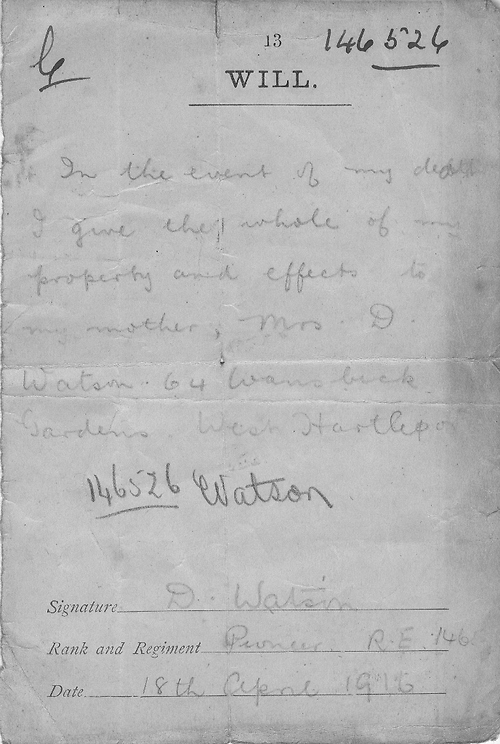 13 146526
WILL.
In the event of my death
I give the whole of my
property and effects to
my mother, Mrs. D.
Watson. 64 Wansbeck
Gardens. West Hartlepo
146526 Watson
Signature D. Watson
Rank and Regiment Pioneer. R.E. 146
Date 18th April 1916